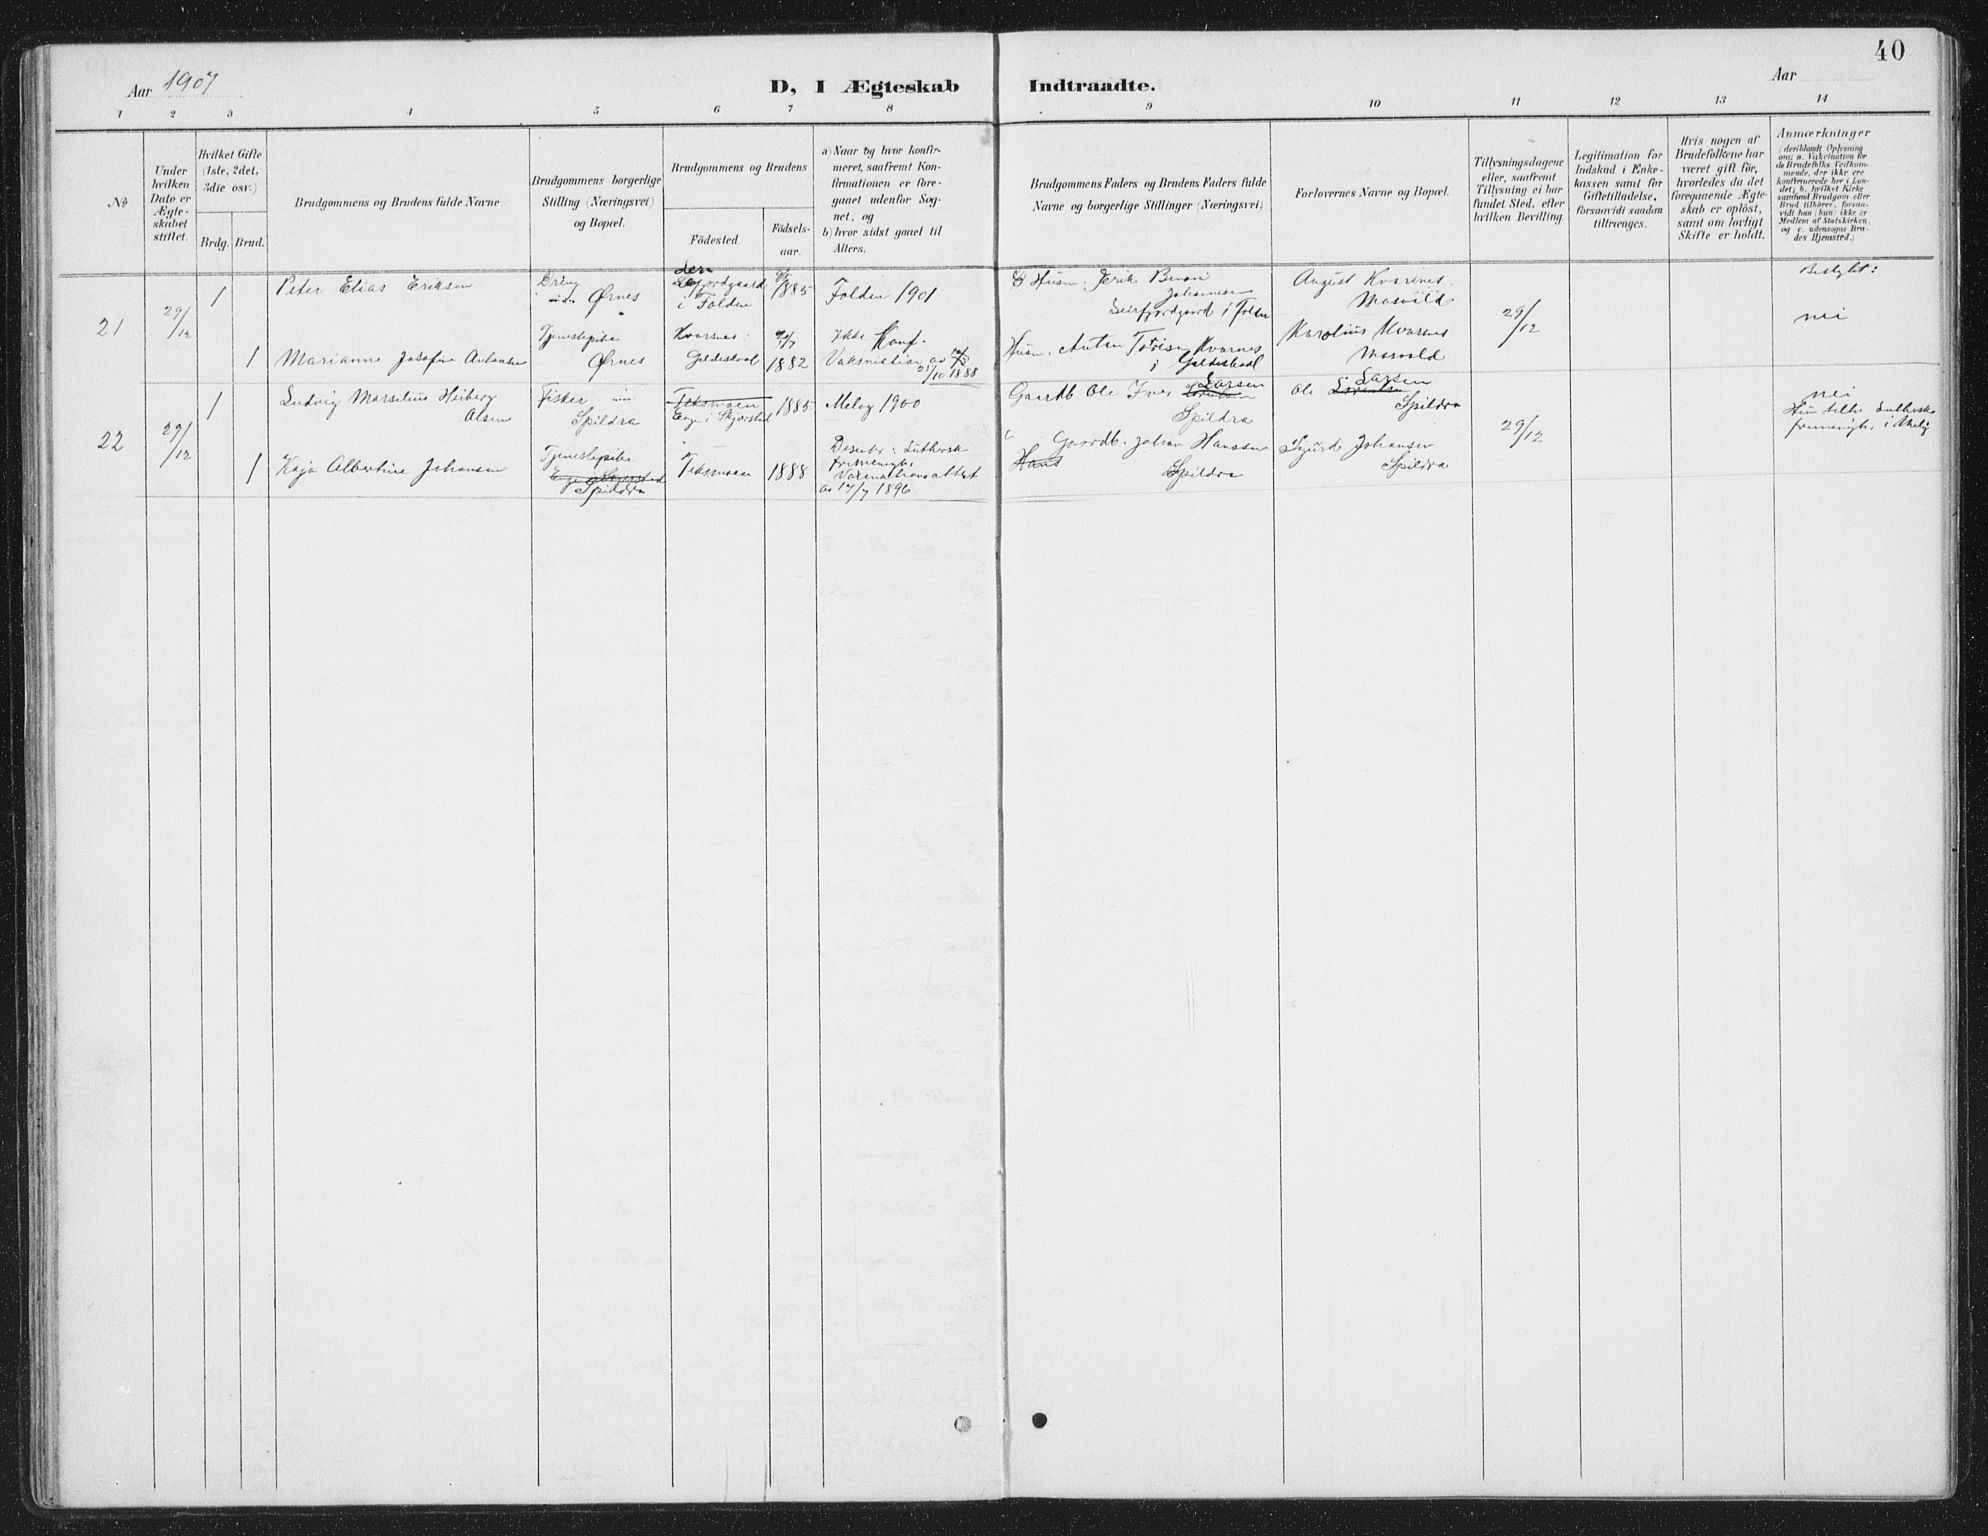 40
Aar 1907
D, I Ægteskab
Indtraadte.
Aar
1 2 3 4 5 6 7 8 9 10 11 12 13 14
No
Under
hvilken
Dato er
Ægte-
skabet
stiftet.
Hvilket Gifte
(1ste, 2det,
3die osv.)
Brdg. Brud.
Brudgommens og Brudens fulde Navne
Brudgommens borgerlige
Stilling (Næringsvei)
og Bopæl.
Brudgommens og Brudens
Födested.
Födsels-
aar.
a) Naar og hvor konfir-
meret, saafremt Kon-
firmationen er fore-
gaaet udenfor Sog-
net, og
b) hvor sidst gaaet til
Alters.
Brudgommens Faders og Brudens Faders fulde
Navne og borgerlige Stillinger (Næringsvei)
Forlovernes Navne og Bopæl.
Tillysningsdagene
eller, saafremt
Tillysning ei har
fundet Sted, efter
hvilken Bevilling.
Legitimation for
Indskud i Enke-
kassen samt for
Giftetilladelse,
forsaavidt saadan
tiltrænges.
Hvis nogen af
Brudefolkene har
været gift för,
hvorledes da det
foregaaende Ægte-
skab er oplöst,
samt om lovligt
Skifte er holdt.
Anmærkninger
(deriblandt Oplysning
om: a. Vakcination for
de Brudefolks Vedkom-
mende, der ikke ere
konfirmerede her i Lan-
det; b. hvilket Kirke
samfund Brudgom eller
Brud tilhörer, forsaa-
vidt han (hun) ikke er
Medlem af Statskirken,
og c. udensogns Bru-
des Hjemsted.)
21
29/12
1
Peter Elias Eriksen
Ørnes
i Folden
1885
Folden 1901
Husm. Erik
Johannesen
i Folden
August Kvarsnes
29/12
Beslgtt:
nei
1
Marianne Josefine Antonsen
Tjenestepike
Ørnes
Kvarsnes
Gildeskaal
1882
Ikke Konf.
1888
Husm. Anton
Kvarnes
i Gildeskaal
Karolius Kvarsnes
22
29/12
1
Ludvig Marselius Heiberg
Olsen
Fisker
Spildra
Teksmoen
1885
Meløy 1900
Gaardb Ole Iver Larsen
Spildra
Ole Larsen
Spildra
29/12
nei
1
Kaja Albertine Johansen
Tjenestepike
Spildra
Teksmoen
1888
Disenter: Luthersk
frimenigh.
Vaxinationsattest
av 17/7 1896
Gaardb. Johan Hanssen
Hans
Spildra
Sigurd Johansen
Spildra